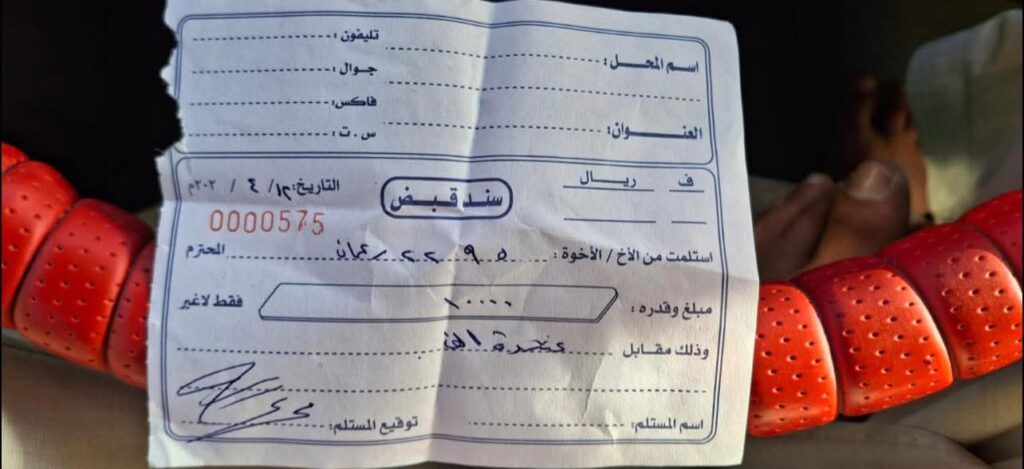 اسم المحل: تليفون:
جوال:
العنوان: فاكس:
س.ت:
ف ريال سند قبض التاريخ: ١٢/ ٤ / ٢٠٢م
0000575
استلمت من الأخ / الأخوة: ٢٢٩٥ عمان المحترم
مبلغ وقدره: ١٠٠٠٠ فقط لاغير
وذلك مقابل
اسم المستلم: توقيع المستلم: